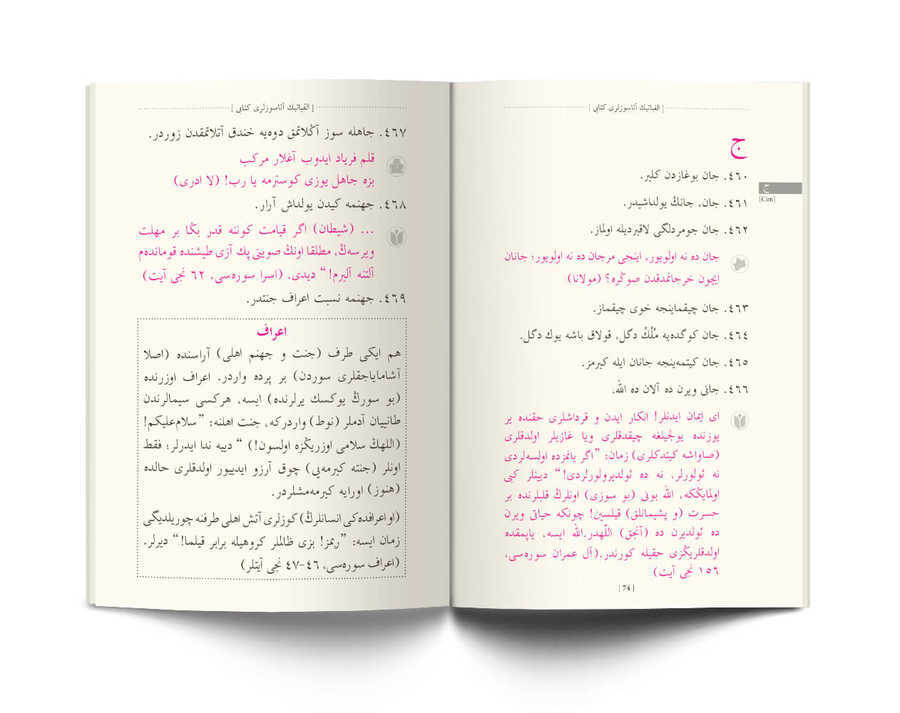 [ الفبائیك آتاسوزلری كتابی ]
ج
ج
[Cim]
٤٦٠. جان بوغازدن كلیر.
٤٦١. جان، جانڭ یولداشیدر.
٤٦٢. جان جومردلگی لاقیردیله اولماز.
جان ده نه اولویور، اینجی مرجان ده نه اولویور؛ جانان
ایچون خرجانمدقدن صوڭره؟ (مولانا)
٤٦٣. جان چیقماینجه خوی چیقماز.
٤٦٤. جان كوگدەیه مُلْكْ دگل، قولاق باشه یوك دگل.
٤٦٥. جان كیتمه‌ینجه جانان ایله كیرمز.
٤٦٦. جانی ویرن ده آلان ده الله.
ای ایمان ایدنلر! انكار ایدن و قرداشلری حقنده یر
یوزنده یولجیلغه چیقدقلری ویا غازیلر اولدقلری
(صاواشه كیتدكلری) زمان: ”اگر یانمزده اولسه‌لردی
نه ئولورلر، نه ده ئولدیرولورلردی!“ دیینلر كبی
اولمایڭكه، الله بونی (بو سوزی) اونلرڭ قلبلرنده بر
حسرت (و پشیمانلق) قیلسین! چونكه حیاتی ویرن
ده ئولدیرن ده (آنجق) اللّهدر.الله ایسه، یاپمقده
اولدقلریڭزی حقیله كورندر.(آل عمران سوره‌سی،
١٥٦ نجی آیت)
[ 74 ]
[ الفبائیك آتاسوزلری كتابی ]
٤٦٧. جاهله سوز آڭلاتمق دوه‌یه خندق آتلاتمقدن زوردر.
قلم فریاد ایدوب آغلار مركب
بزه جاهل یوزی كوسترمه یا رب! (لا ادری)
٤٦٨. جهنمه كیدن یولداش آرار.
... (شیطان) اگر قیامت كوننه قدر بڭا بر مهلت
ویرسه‌ڭ، مطلقا اونڭ صوینی پك آزی طیشنده قومانده‌م
آلتنه آلیرم!“ دیدی. (اسرا سوره‌سی، ٦٢ نجی آیت)
٤٦٩. جهنمه نسبت اعراف جنتدر.
اعراف
هم ایكی طرف (جنت و جهنم اهلی) آراسنده (اصلا
آشامایاجقلری سوردن) بر پرده واردر. اعراف اوزرنده
(بو سورڭ یوكسك یرلرنده) ایسه، هركسی سیمالرندن
طانییان آدملر (نوط) واردركه، جنت اهلنه: ”سلام‌علیكم!
(اللهڭ سلامی اوزریڭزه اولسون!) “ دییه ندا ایدرلر؛ فقط
اونلر (جنته كیرمه‌یی) چوق آرزو ایدییور اولدقلری حالده
(هنوز) اورایه كیرمه‌مشلردر.
(او اعرافده‌كی انسانلرڭ) كوزلری آتش اهلی طرفنه چوریلدیگی
زمان ایسه: ”ربمز! بزی ظالملر كروهیله برابر قیلما!“ دیرلر.
(اعراف سوره‌سی، ٤٦-٤٧ نجی آیتلر)